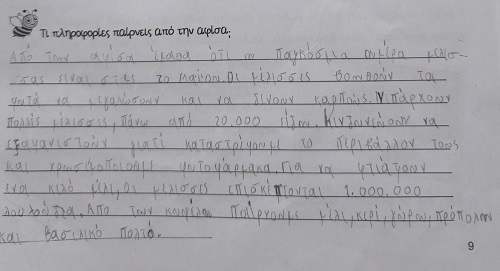 Τι πληροφορίες παίρνεις από την αφίσα;
Από την αφίσα έμαθα ότι η παγκόσμια μέρα μέλισ-
σας είναι στις 20 Μαΐου. Οι μέλισσες βοηθούν τα
φυτά να μεγαλώσουν και να δίνουν καρπούς. Υπάρχουν
πολλές μέλισσες, πάνω από 20.000 είδη. Κινδυνεύουν να
εξαφανιστούν γιατί καταστρέφουμε το περιβάλλον τους
και χρησιμοποιούμε φυτοφάρμακα. Για να φτιάξουν
ένα κιλό μέλι, οι μέλισσες επισκέπτονται 1.000.000
λουλούδια. Από την κυψέλη παίρνουμε μέλι, κερί, γύρη, πρόπολη
και βασιλικό πολτό.
9